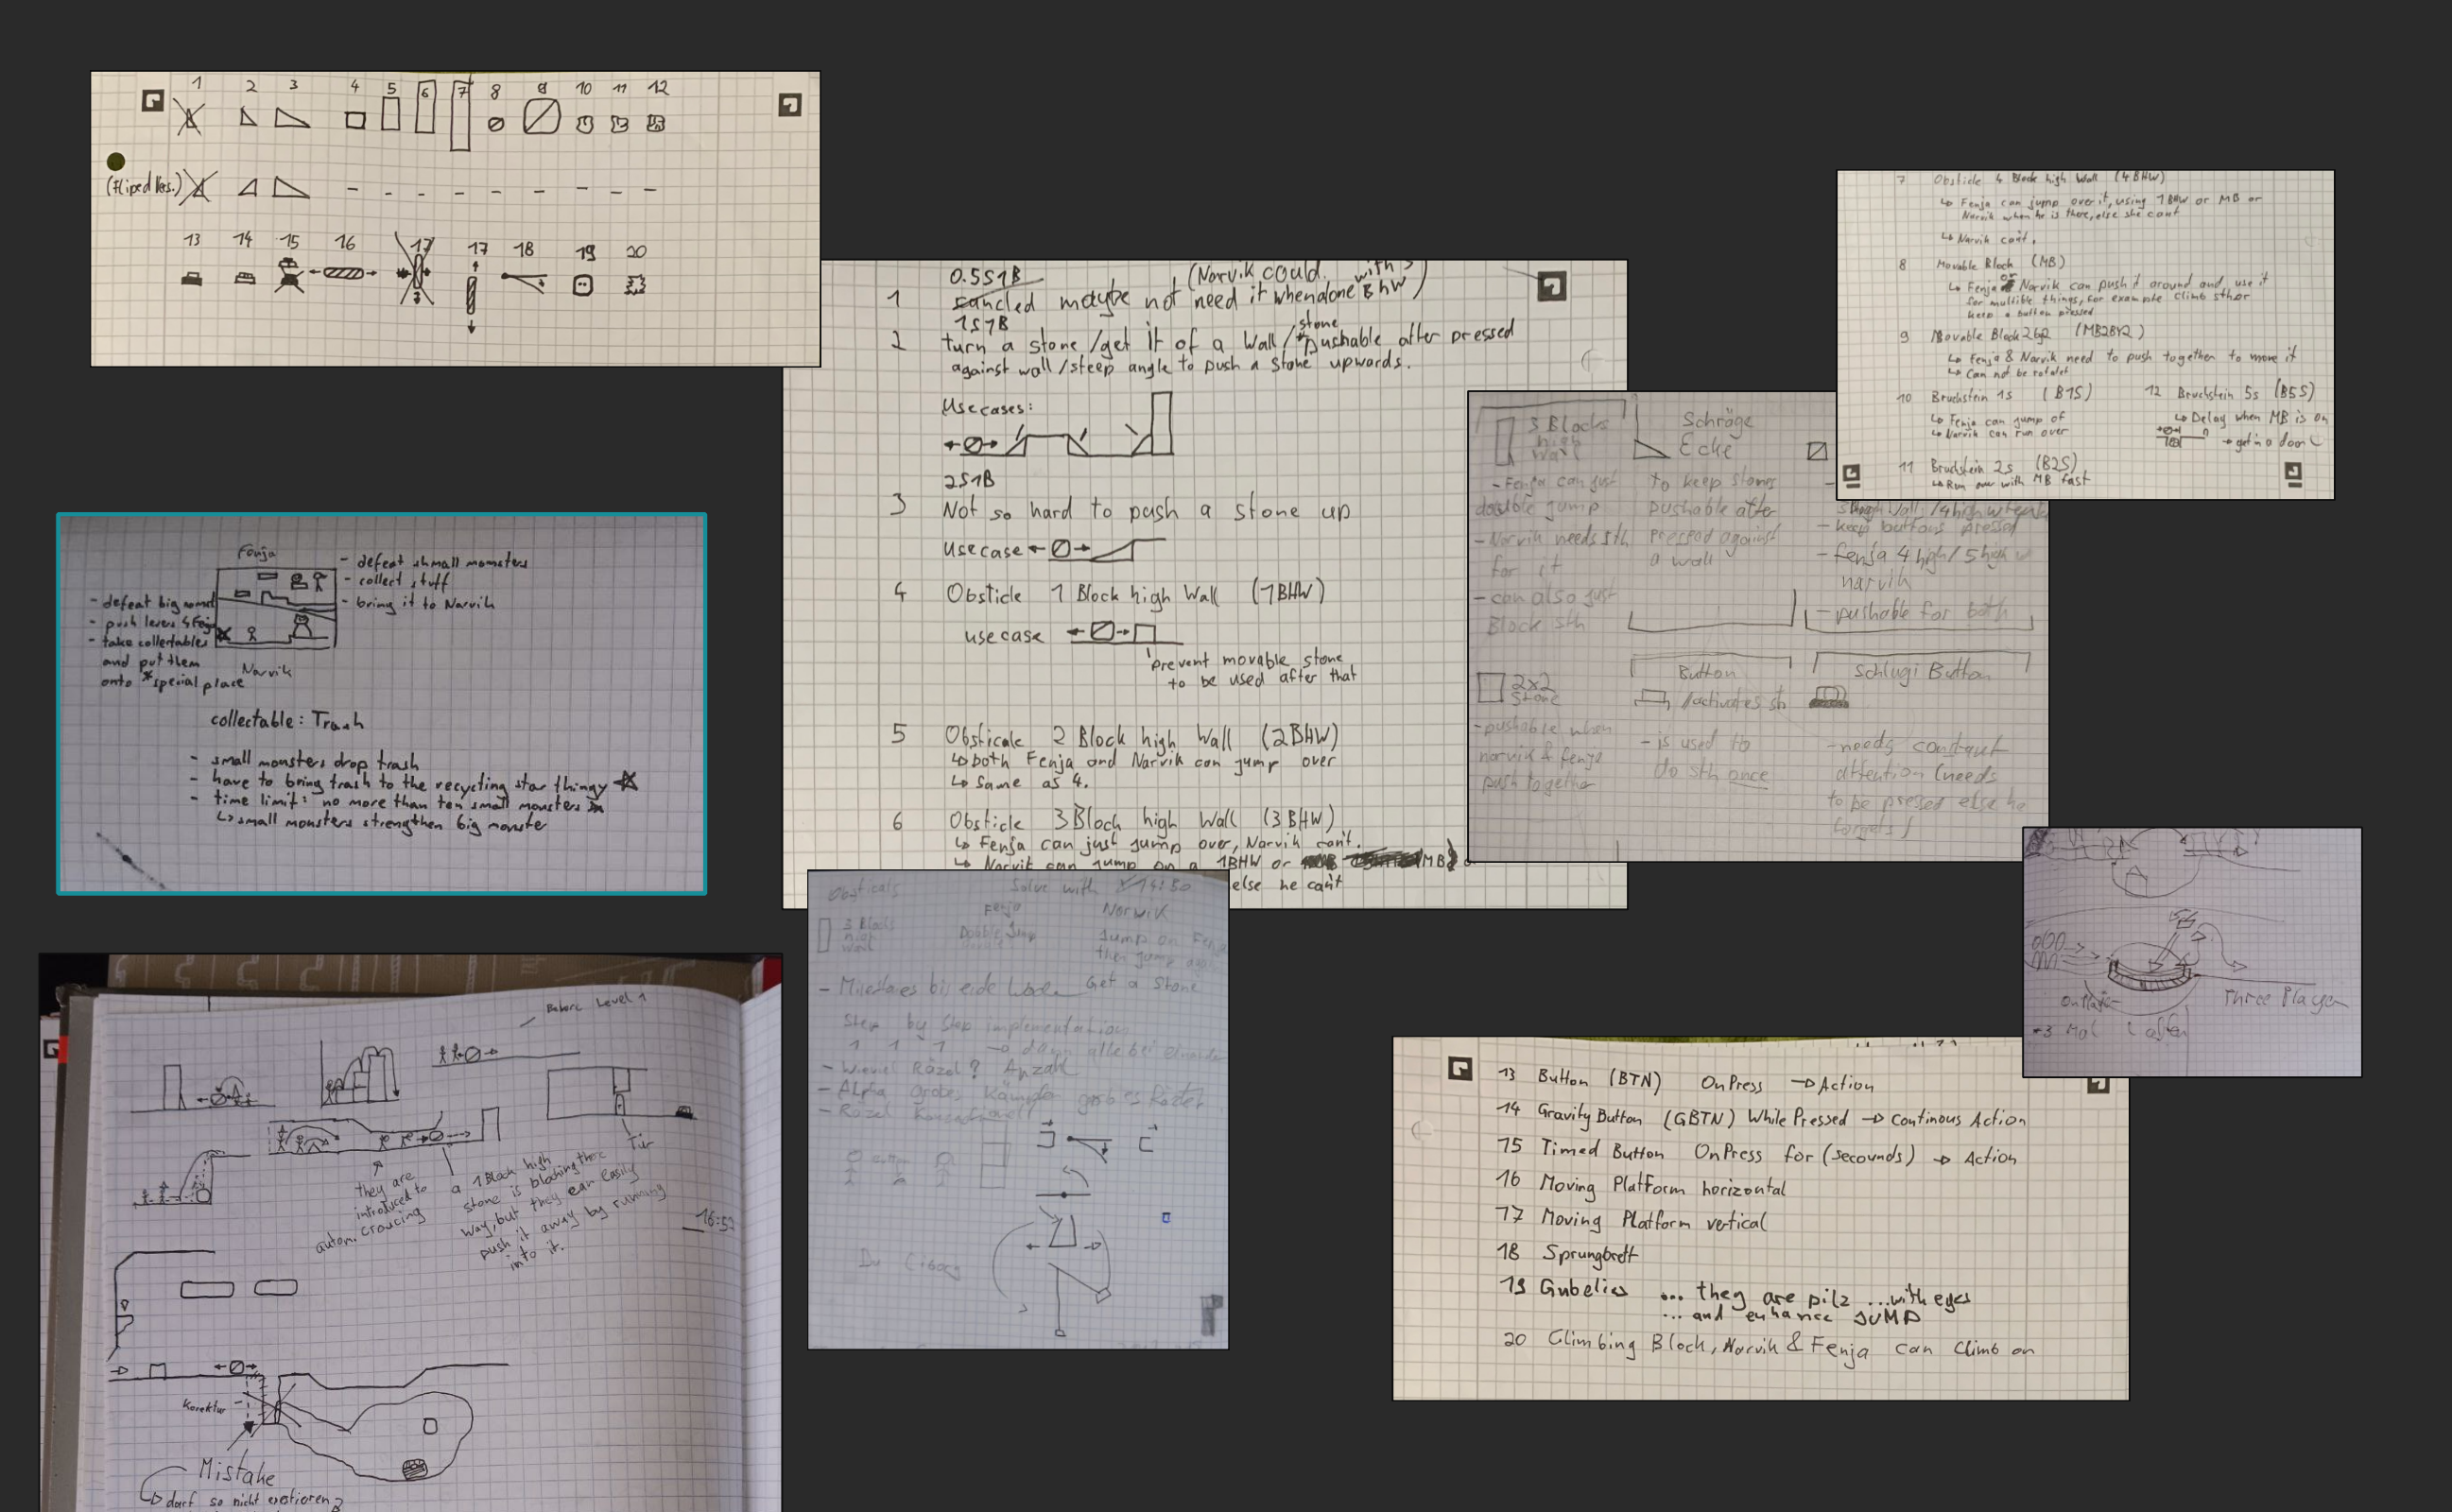 1 2 3 4 5 6 7 8 9 10 11 12
(fliped Ves.)
13 14 15 16 17 17 18 19 20
Fenja
- defeat shmall momsters
- collect stuff
- bring it to Narvik
- defeat big
- push levers
- take collectables
and put them
onto * special place
Narvik
collectable: Trash
- small monsters drop trash
- have to bring trash to the recycling star thingy
- time limit: no more than ten small monsters
↳ small monsters strengthen big monster
0.5S1B
1 cancled maybe not need it when done (Norvik could with BhW)
1S1B
2 turn a stone /get it of a Wall / stone pushable after pressed
against wall /steep angle to push a stone upwards.
Use cases:
2S1B
3 Not so hard to push a stone up
use case
4 Obsticle 1 Block high Wall (1BHW)
use case
prevent movable stone
to be used after that
5 Obsticale 2 Block high Wall (2BHW)
↳ both Fenja and Narvik can jump over
↳ Same as 4.
6 Obsticle 3 Block high Wall (3BHW)
↳ Fenja can just jump over, Narvik can't.
↳ Narvik can jump on a 1BHW or MB
else he can't
7 Obsticle 4 Block high Wall (4BHW)
↳ Fenja can jump over it, using 1BHW or MB or
Narvik when he is there, else she cant
↳ Narvik can't.
8 Movable Block (MB)
↳ Fenja or Narvik can push it around and use it
for multible things, for example climb sth or
keep a button pressed
9 Movable Block 2by2 (MB2BY2)
↳ Fenja & Narvik need to push together to move it
↳ Can not be rotatet
10 Bruchstein 1s (B1S)
↳ Fenja can jump of
↳ Narvik can run over
12 Bruchstein 5s (B5S)
↳ Delay when MB is on
→ get in a door
11 Bruchstein 2s (B2S)
↳ Run over with MB fast
3 Blocks
high
Wall
- Fenja can just
double jump
- Narvik needs sth
for it
- can also just
Block sth
Schräge
Ecke
to keep stones
pushable after
pressed against
a wall
- keep buttons pressed
- fenja 4 high / 5 high
narvik
- pushable for both
2x2
Stone
- pushable when
narvik & fenja
push together
Button
/activates sth
- is used to
do sth once
Schlugi Button
- needs constant
attention (needs
to be pressed else he
forgets)
Obsticals
Solve with
14:50
Fenja
Norwik
3 Blocks
high
wall
Dobble Jump
Jump on Fenja
then jump
Get a Stone
Step by Step implementation
1 1 1 → dann alle bei
- Wieviel Räzel? Anzahl
Before Level 1
Tür
they are
introduced to
autom. croucing
a 1 Block high
stone is blocking there
way, but they can easily
push it away by running
into it.
Korektur
Mistake
↳ darf so nicht
13 Button (BTN) OnPress → Action
14 Gravity Button (GBTN) While Pressed → Continous Action
15 Timed Button OnPress for (secounds) → Action
16 Moving Platform horizontal
17 Moving Platform vertical
18 Sprungbrett
19 Gubelies ... they are pilz ... with eyes
... and enhance JUMP
20 Climbing Block, Narvik & Fenja can Climb on
Three Player